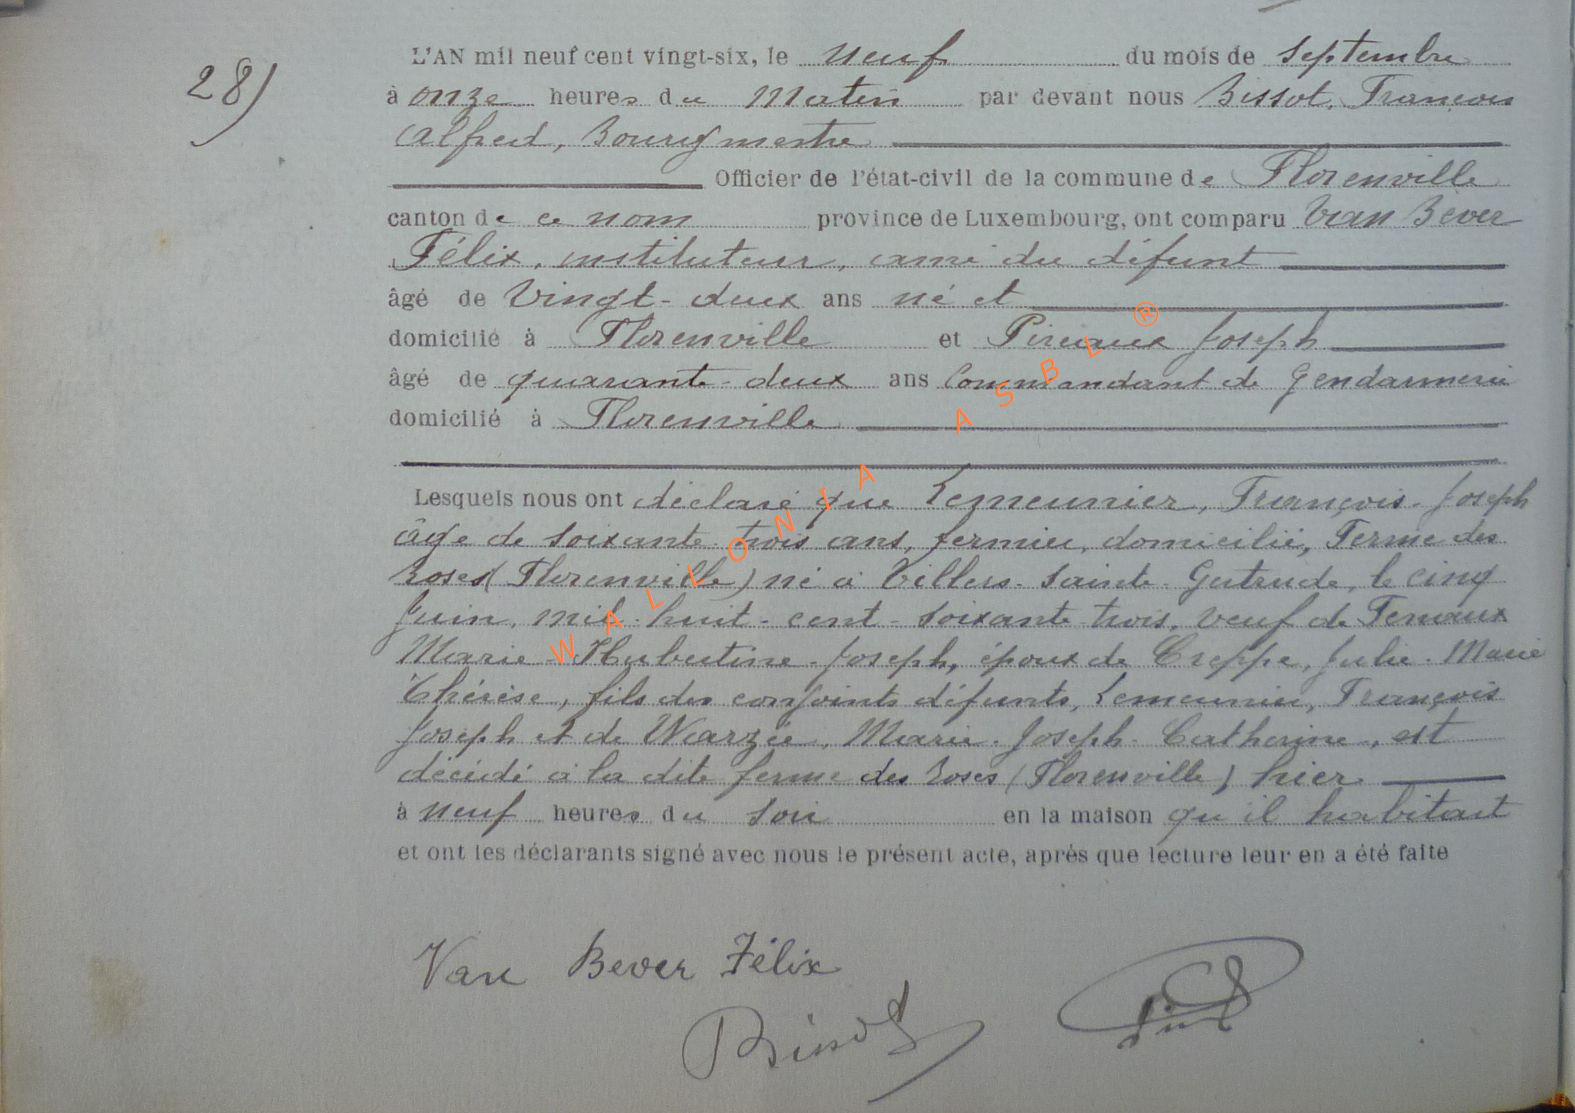 28)
L'AN mil neuf cent vingt-six, le neuf du mois de septembre
à onze heures du Matin par devant nous Bissot, François
Alfred, Bourgmestre
Officier de l'état-civil de la commune de Florenville
canton de ce nom province de Luxembourg, ont comparu Van Bever
Félix, instituteur, ami du défunt
âgé de Vingt-deux ans né et
domicilié à Florenville et Joseph
âgé de quarante-deux ans Commandant de Gendarmerie
domicilié à Florenville
Lesquels nous ont déclaré que Lemeunier, François-Joseph
âgé de soixante-trois ans, fermier, domicilié, Ferme des
Roses (Florenville) né à Villers-Sainte-Gertrude, le cinq
Juin, mil-huit-cent-soixante-trois, veuf de
Marie-Hubertine-Joseph, époux de Creppe, Julie-Marie
Thérèse, fils des conjoints défunts, Lemeunier, François
Joseph et de Warzée, Marie-Joseph-Catherine, est
décédé à la dite ferme des Roses (Florenville) hier
à neuf heures du soir en la maison qu'il habitait
et ont les déclarants signé avec nous le présent acte, après que lecture leur en a été faite
Van Bever Félix
Bissot
WALLONIA ASBL ®